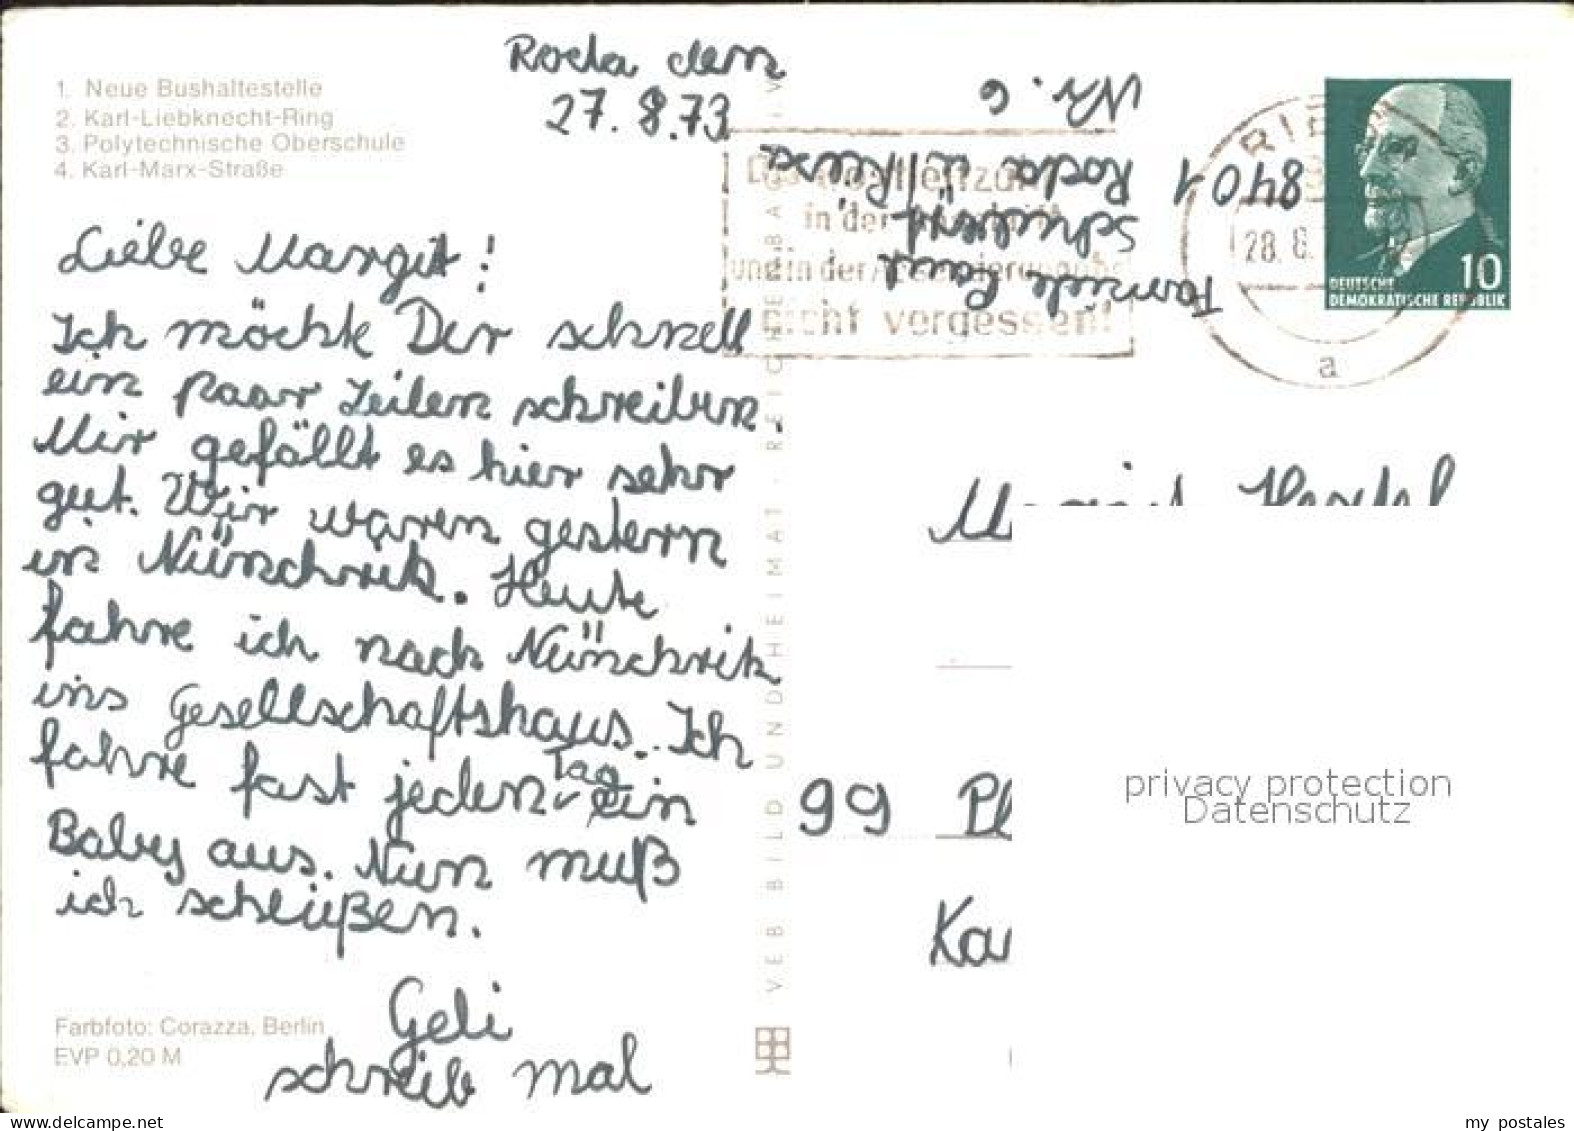 Roda den
27.8.73
1. Neue Bushaltestelle
2. Karl-Liebknecht-Ring
3. Polytechnische Oberschule
4. Karl-Marx-Straße
Liebe Margit!
Ich möchte Dir schnell
ein paar Zeilen schreiben.
Mir gefällt es hier sehr
gut. Wir waren gestern
in Nünchritz. Heute
fahre ich nach Nünchritz
ins Gesellschaftshaus. Ich
fahre fast jeden Tag ein
Baby aus. Nun muß
ich schließen.
Geli
schreib mal
Farbfoto: Corazza, Berlin
EVP 0,20 M
VEB BILD UND HEIMAT · REICHENBACH I. V.
Familie
8401 Roda ü./Riesa
Nr. 6
in der
und in der
nicht vergessen!
28. 8.
a
DEUTSCHE
DEMOKRATISCHE REPUBLIK
10
99 Pl
Ka
privacy protection
Datenschutz
www.delcampe.net
my postales